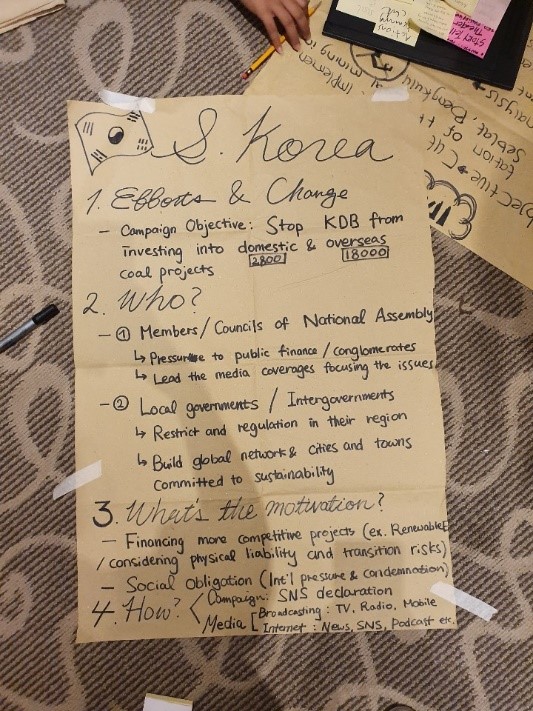 S. Korea
1. Efforts & Change
- Campaign Objective: Stop KDB from
investing into domestic & overseas
2800 18000
coal projects
2. Who?
- ① Members / Councils of National Assembly
↳ Pressure to public finance / conglomerates
↳ Lead the media coverages focusing the issues
- ② Local governments / Intergovernments
↳ Restrict and regulation in their region
↳ Build global network & cities and towns
committed to sustainability
3. What's the motivation?
- Financing more competitive projects (ex. Renewable
/ considering physical liability and transition risks)
- Social Obligation (Int'l pressure & condemnation)
4. How? < Campaign: SNS declaration
Media [ Broadcasting : TV, Radio, Mobile
Internet : News, SNS, Podcast etc.
Implemen
mining in
Seblat, Bengkulu
tation of
Cut